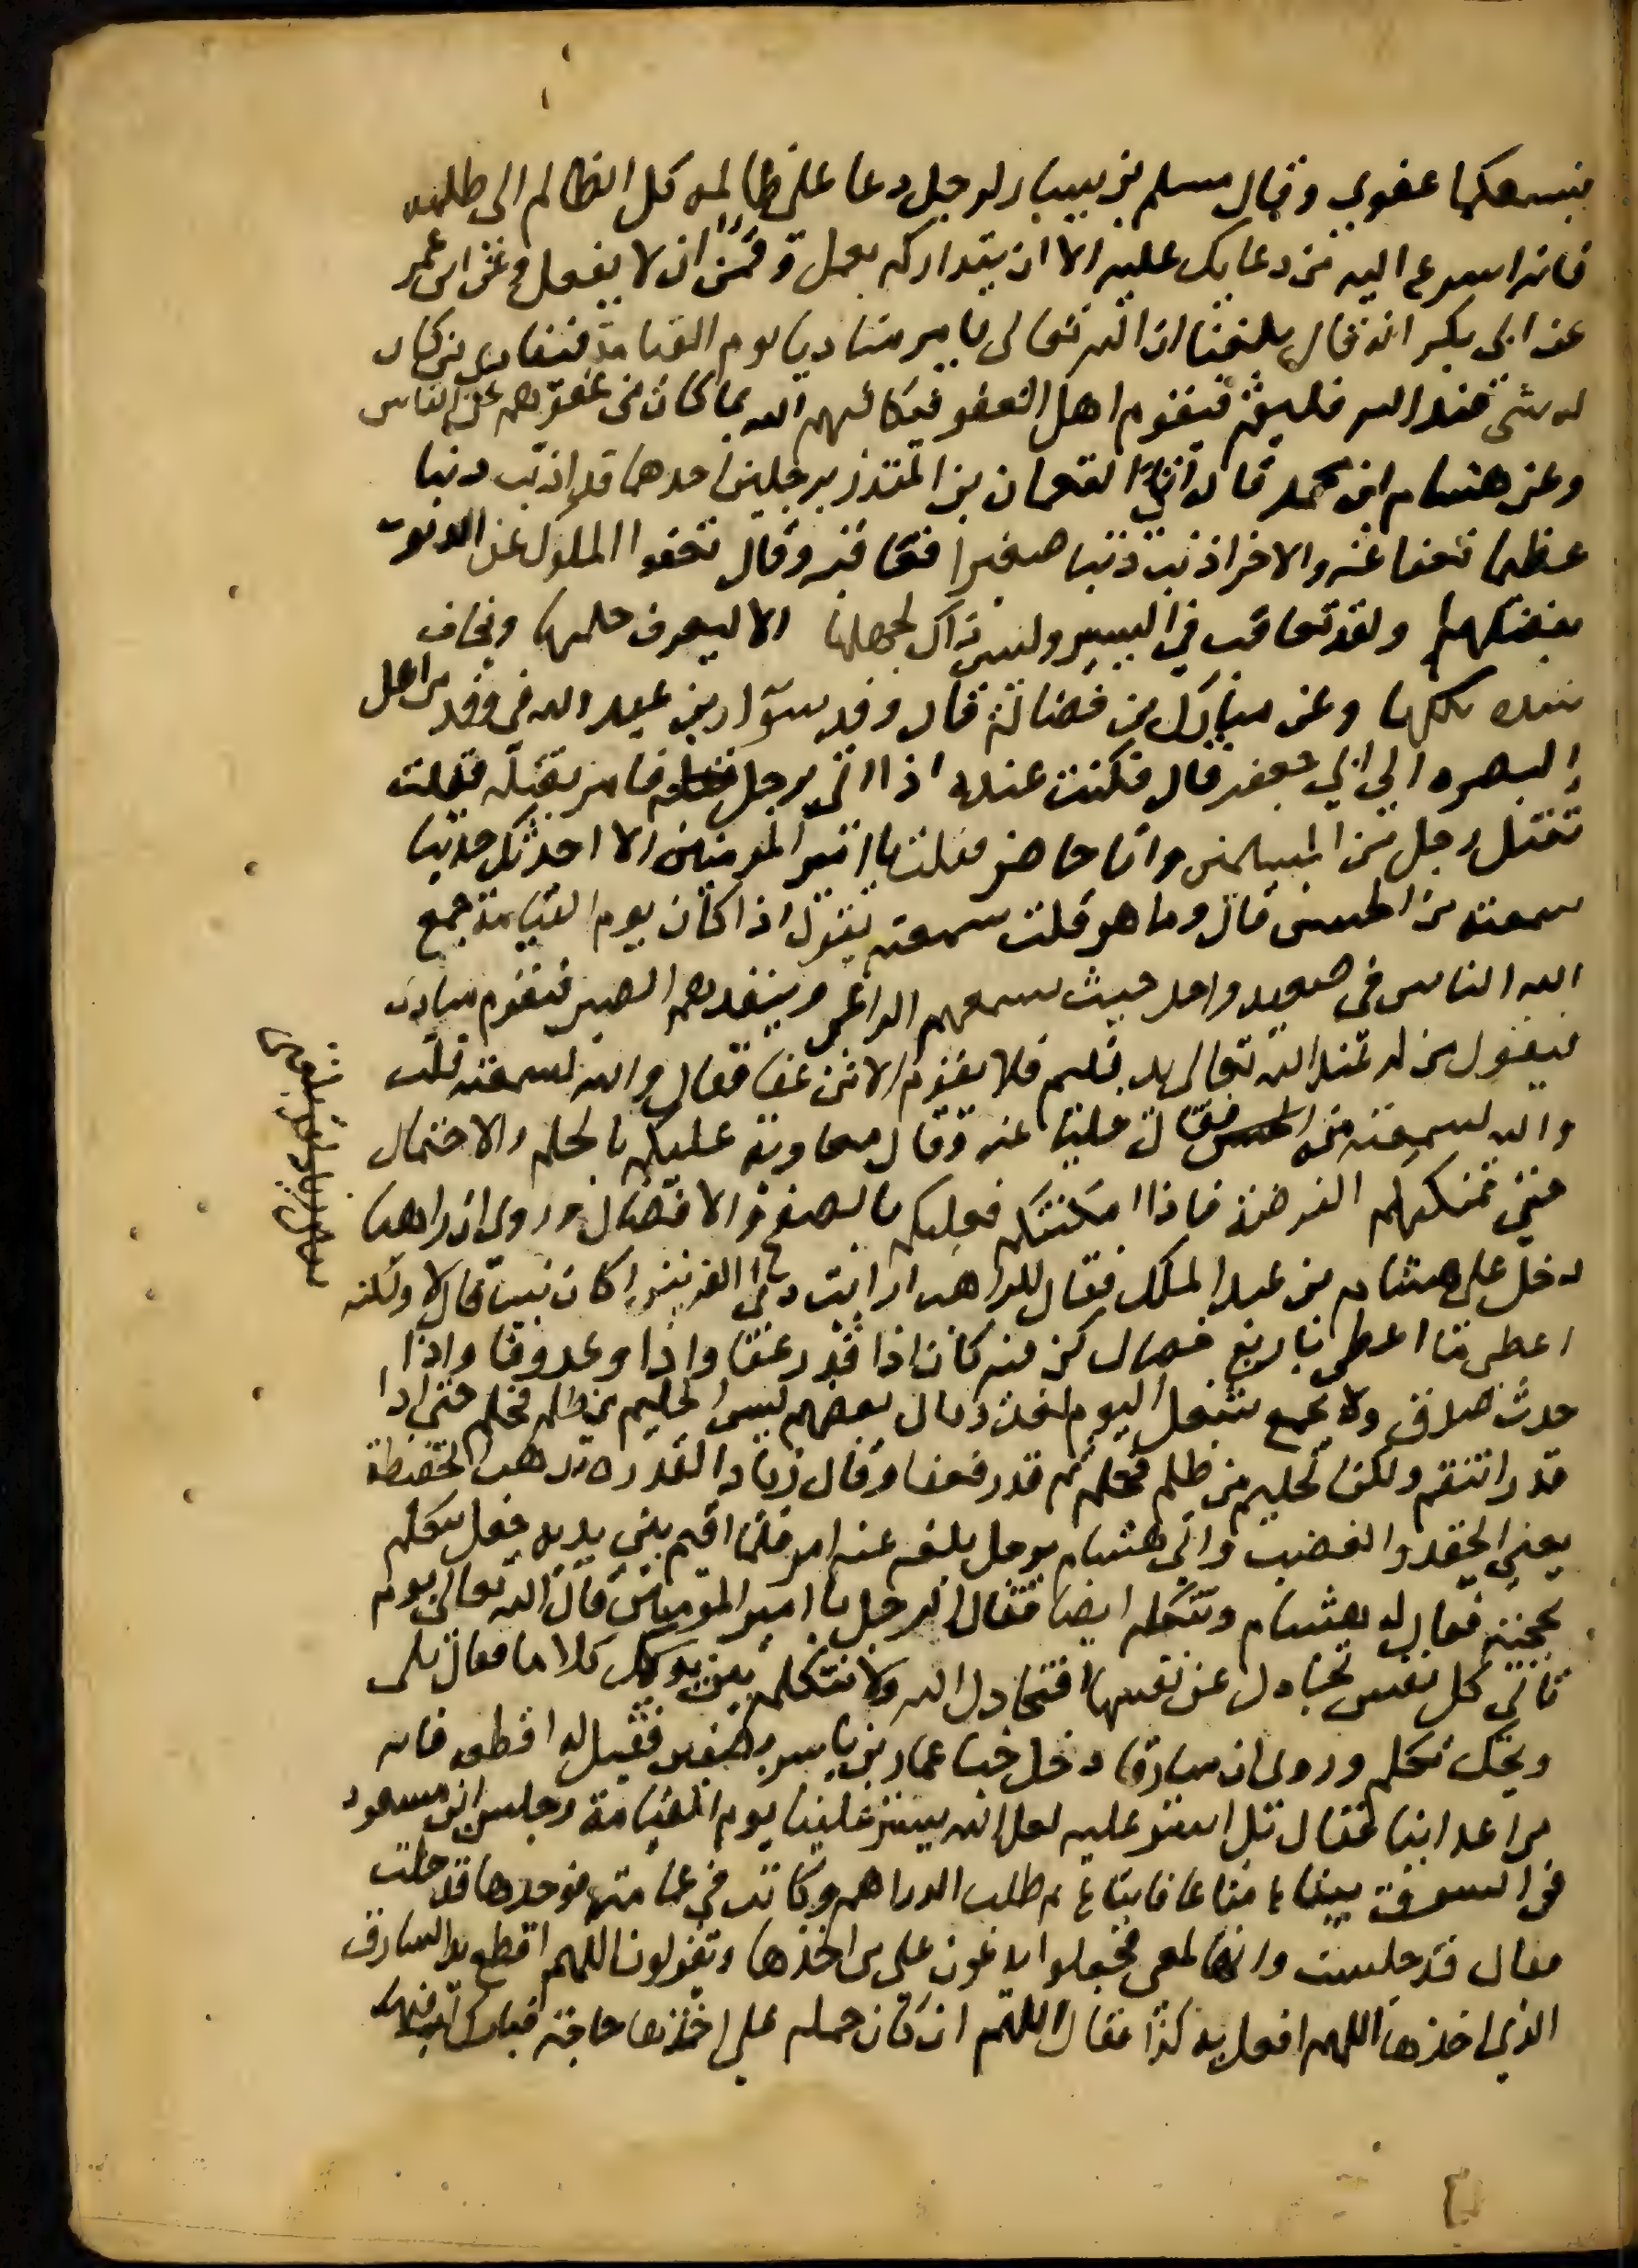 فيسعكما عفوي وقال مسلم بن يسار لرجل دعا على ظالمه كل الظالم الى ظلمه
فانه اسرع اليه من دعايك عليه الا ان يتداركه بعمل وقمن ان لا يفعل وعن ابن عمر
عن ابى بكر انه قال بلغنا ان الله تعالى يامر مناديا يوم القيامة فينادي من كان
له شى عند الله فليقم فيقوم اهل العفو فيكافيهم الله بما كان من عفوهم عن الناس
وعن هشام ابن محمد قال اتي النعمان بن المنذر برجلين احدهما قد اذنب ذنبا
عظيما فعفا عنه والاخر اذنب ذنبا صغيرا فعاقبه وقال تعفوا الملوك عن الذنوب
بفضلها ولقد تعاقب في اليسير وليس ذاك لجهلها الا ليعرف حلمها ويخاف
شده نكلها وعن مبارك بن فضالة قال وفد سوار بن عبد الله فى وفد من اهل
البصره الي ابي جعفر قال فكنت عنده اذ اتى برجل فامر بقتله فقلت
تقتل رجل من المسلمين وانا حاضر فقلت يا امير المومنين الا احدثك حديثا
سمعته من الحسن قال وما هو قلت سمعته يقول اذا كان يوم القيامة جمع
الله الناس فى صعيد واحد حيث يسمعهم الداعى وينفدهم البصر فيقوم مناد
فيقول من له عند الله تعالى يد فليقم فلا يقوم الا من عفا فقال والله لسمعته قلت
والله لسمعته من الحسن فقال خلينا عنه وقال معاوية عليكم بالحلم والاحتمال
حتى تمكنكم الفرصة فاذا امكنتكم فعليكم بالصفح والافضال وروى ان راهبا
دخل على هشام بن عبد الملك فقال للراهب ارايت ذى القرنين اكان نبيا قال لا ولكنه
اعطى ما اعطى باربع خصال كن فيه كان اذا قدر عفا واذا وعد وفا واذا
حدث صدق ولا يجمع شغل اليوم لغد وقال بعضهم ليس الحليم من ظلم فحلم حتى اذا
قدر انتقم ولكن الحليم من ظلم فحلم ثم قدر فعفا وقال زياد القدره تذهب الحفيظة
يعني الحقد والغضب واتي هشام برجل بلغه عنه امر فلما اقيم بين يديه جعل يتكلم
بحجته فقال له هشام وتتكلم ايضا فقال الرجل يا امير المومنين قال الله تعالى يوم
تاتي كل نفس تجادل عن نفسها افتجادل الله ولا نتكلم بين يديك كلاما فقال بلى
ويحك تكلم وروى ان سارقا دخل خبا عمار بن ياسر بصفين فقيل له اقطعه فانه
من اعداينا فقال بل استر عليه لعل الله يستر علينا يوم القيامة وجلس ابن مسعود
فى السوق يبتاع متاعا فابتاع ثم طلب الدراهم وكانت في عمامته فوجدها قد حلت
فقال قد جلست وانها لمعى فجعلوا يدعون على من اخذها ويقولون اللهم اقطع يد السارق
الذي اخذها اللهم افعل به كذا فقال اللهم ان كان حمله على اخذها حاجة فبارك له فيها